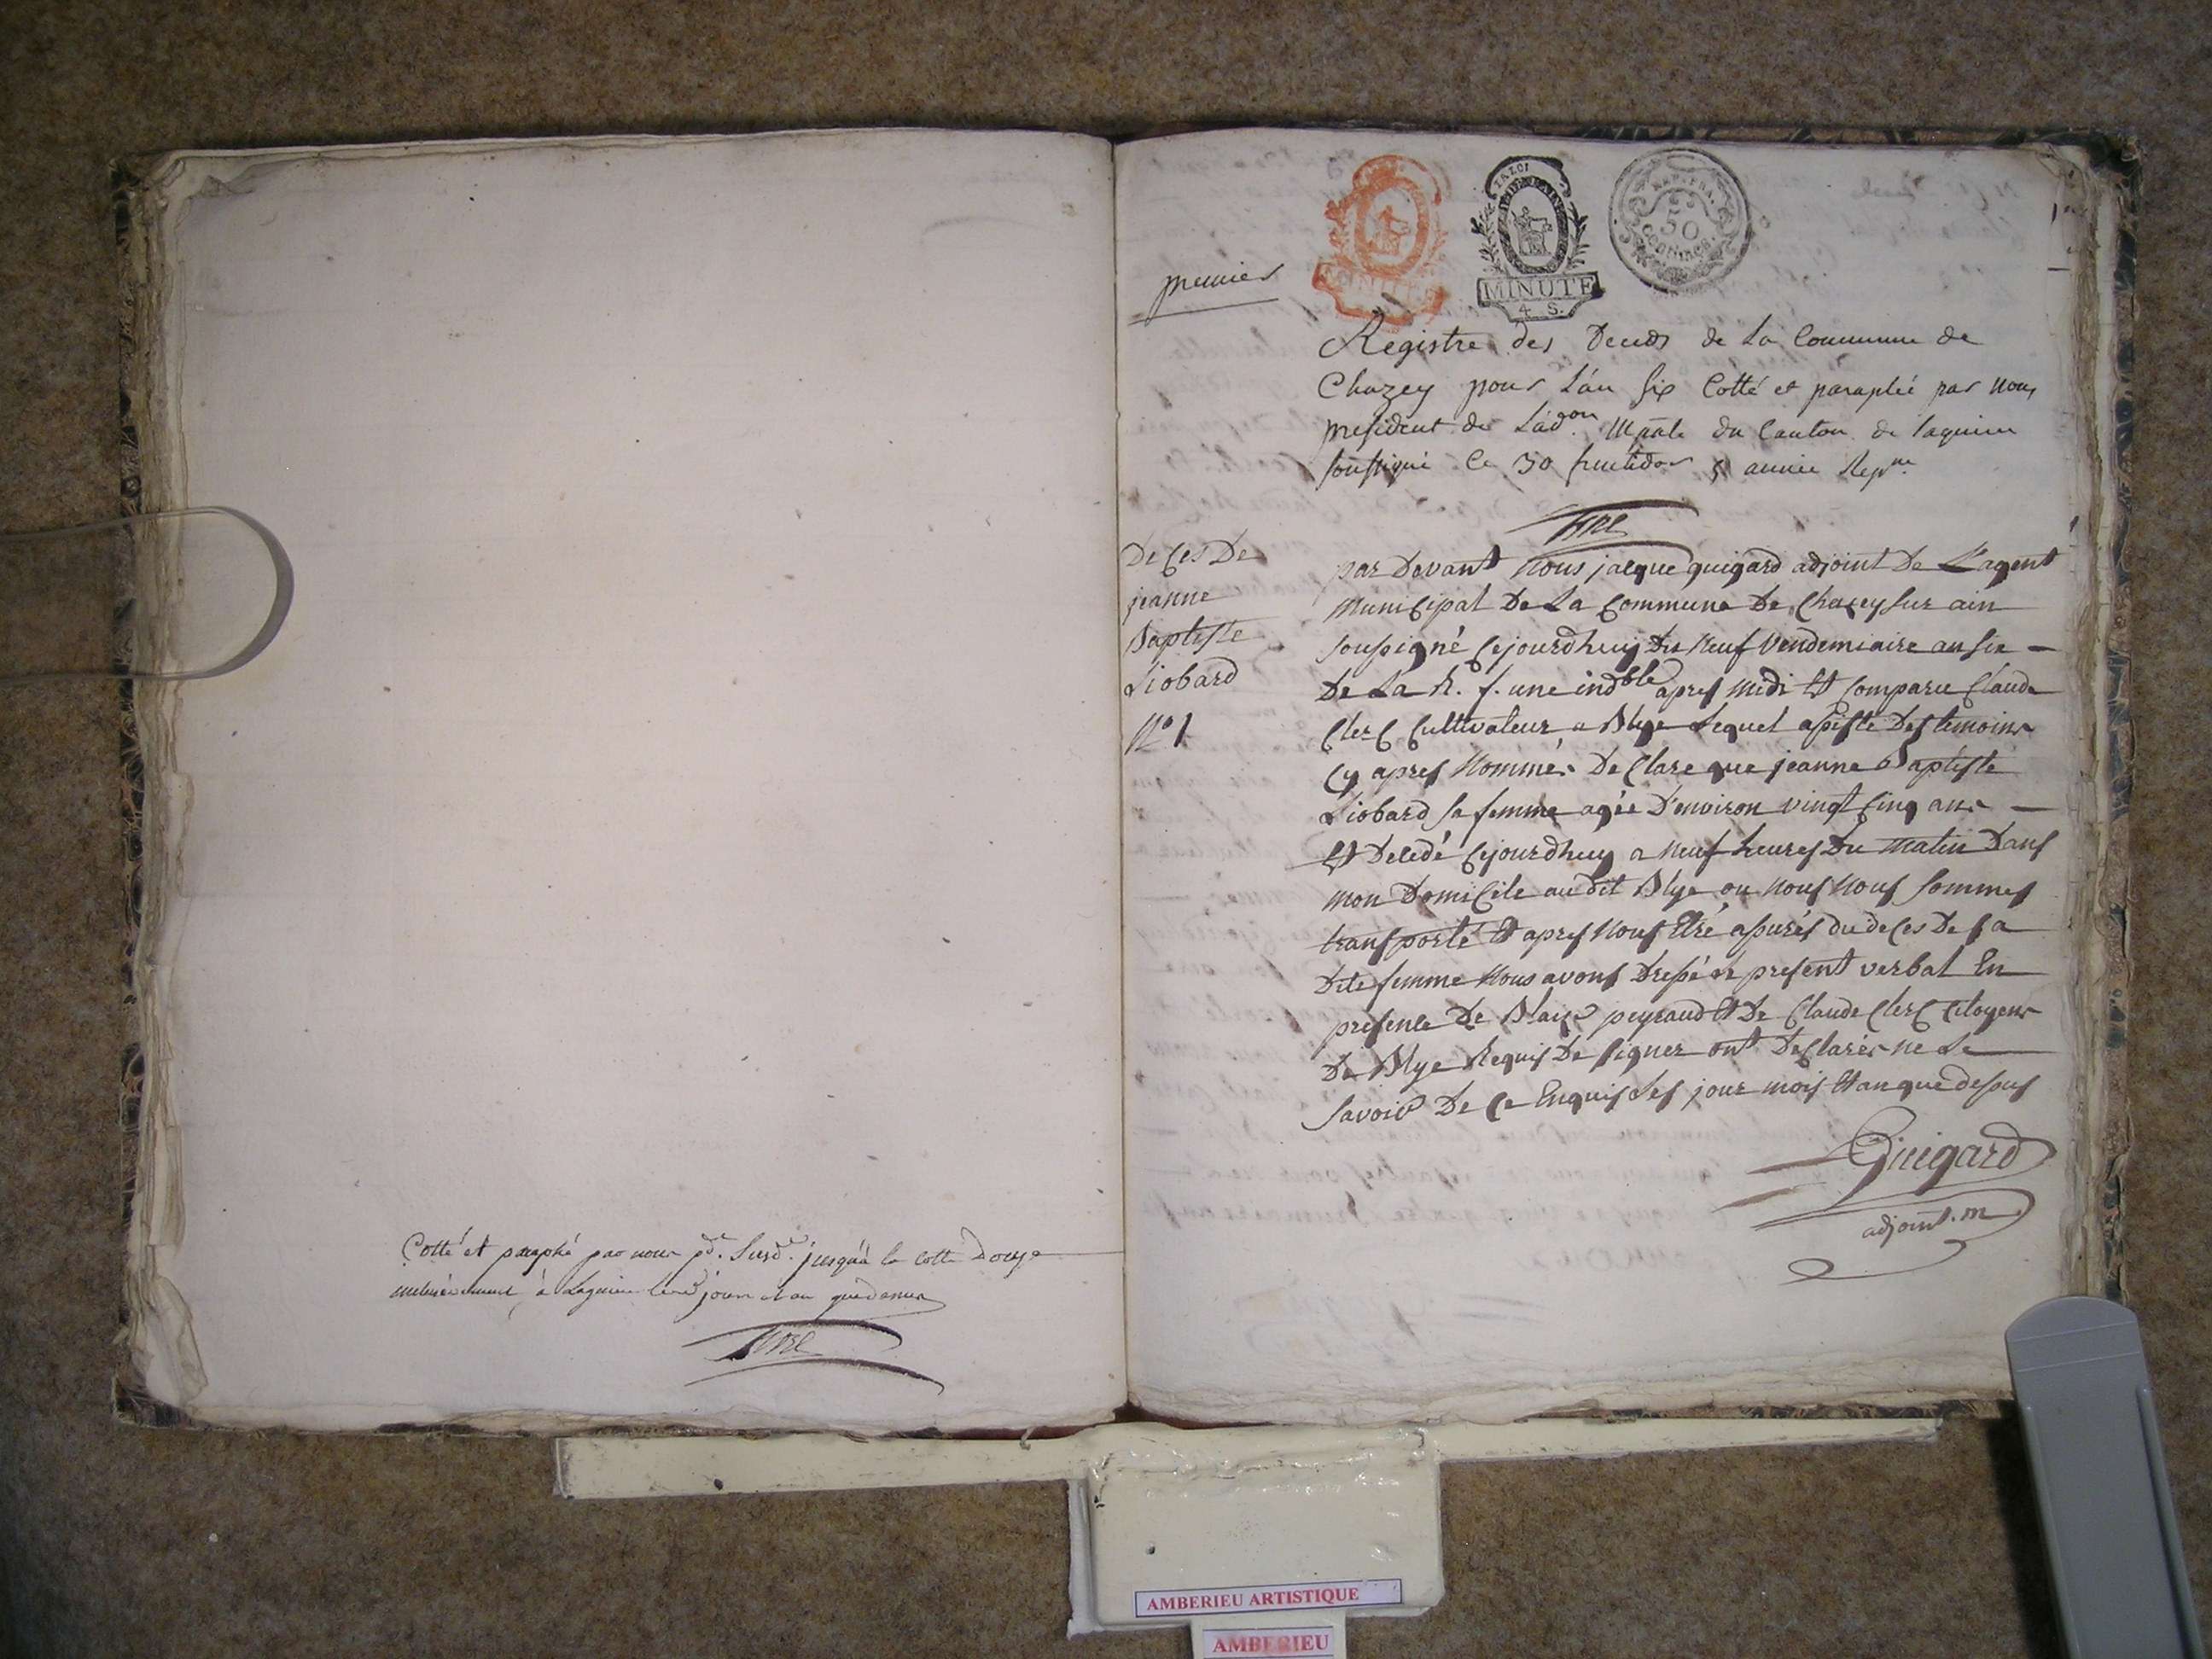 Cotté et paraphé par nous pd.t Susd.t jusqu'a la cotte Douze
à Lagnieu led jour et an que dessus
premier
MINUTE
4. S.
REP. FRA.
50
centimes.
Registre des Decés de La Commune de
Chazey pour L'an Six Cotté et paraphé par nous
president de L'ad.on Mpale du Canton de Lagnieu
soussigné le 30 fructidor 5 année Rep.ne
De Ces De
jeanne
Baptiste
Liobard
N.o 1
par Devant Nous jacque guigard adjoint De L'agent
MuniCipal De La Commune De Chazey sur ain
soussigné Cejourdhuy Du Neuf Vendemiaire an six
De La R. f. une ind.ble apres Midi Est Comparu Claude
ClerC Cultivateur a Blye Lequel assisté Des temoins
Cy apres Nommés DeClare que jeanne Baptiste
Liobard sa femme agée D'environ vingt Cinq ans
Est Decedé Cejourdhuy a Neuf heures Du Matin Dans
mon DomiCile au dit Blye ou Nous Nous sommes
transporté Et apres Nous Etré assurés du deCes De sa
Dite femme Nous avons Dressé le present verbal En
presence De Blaise peyraud Et De Claude ClerC Citoyens
De Blye Requis De signer ont DeClarés ne Le
savoir De Ce Enquis Les jour mois Et an que desus
Guigard
adjoint. m
AMBERIEU ARTISTIQUE
AMBERIEU